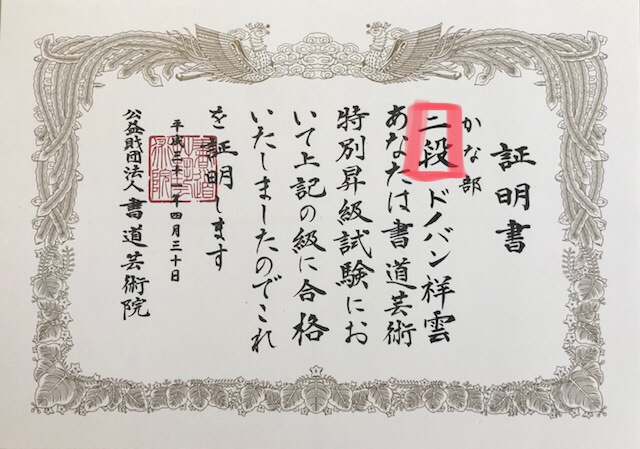 証明書
かな部
二段 ドノバン祥雲
あなたは書道芸術
特別昇級試験にお
いて上記の級に合格
いたしましたのでこれ
を証明します
平成三十一年四月三十日
公益財団法人書道芸術院